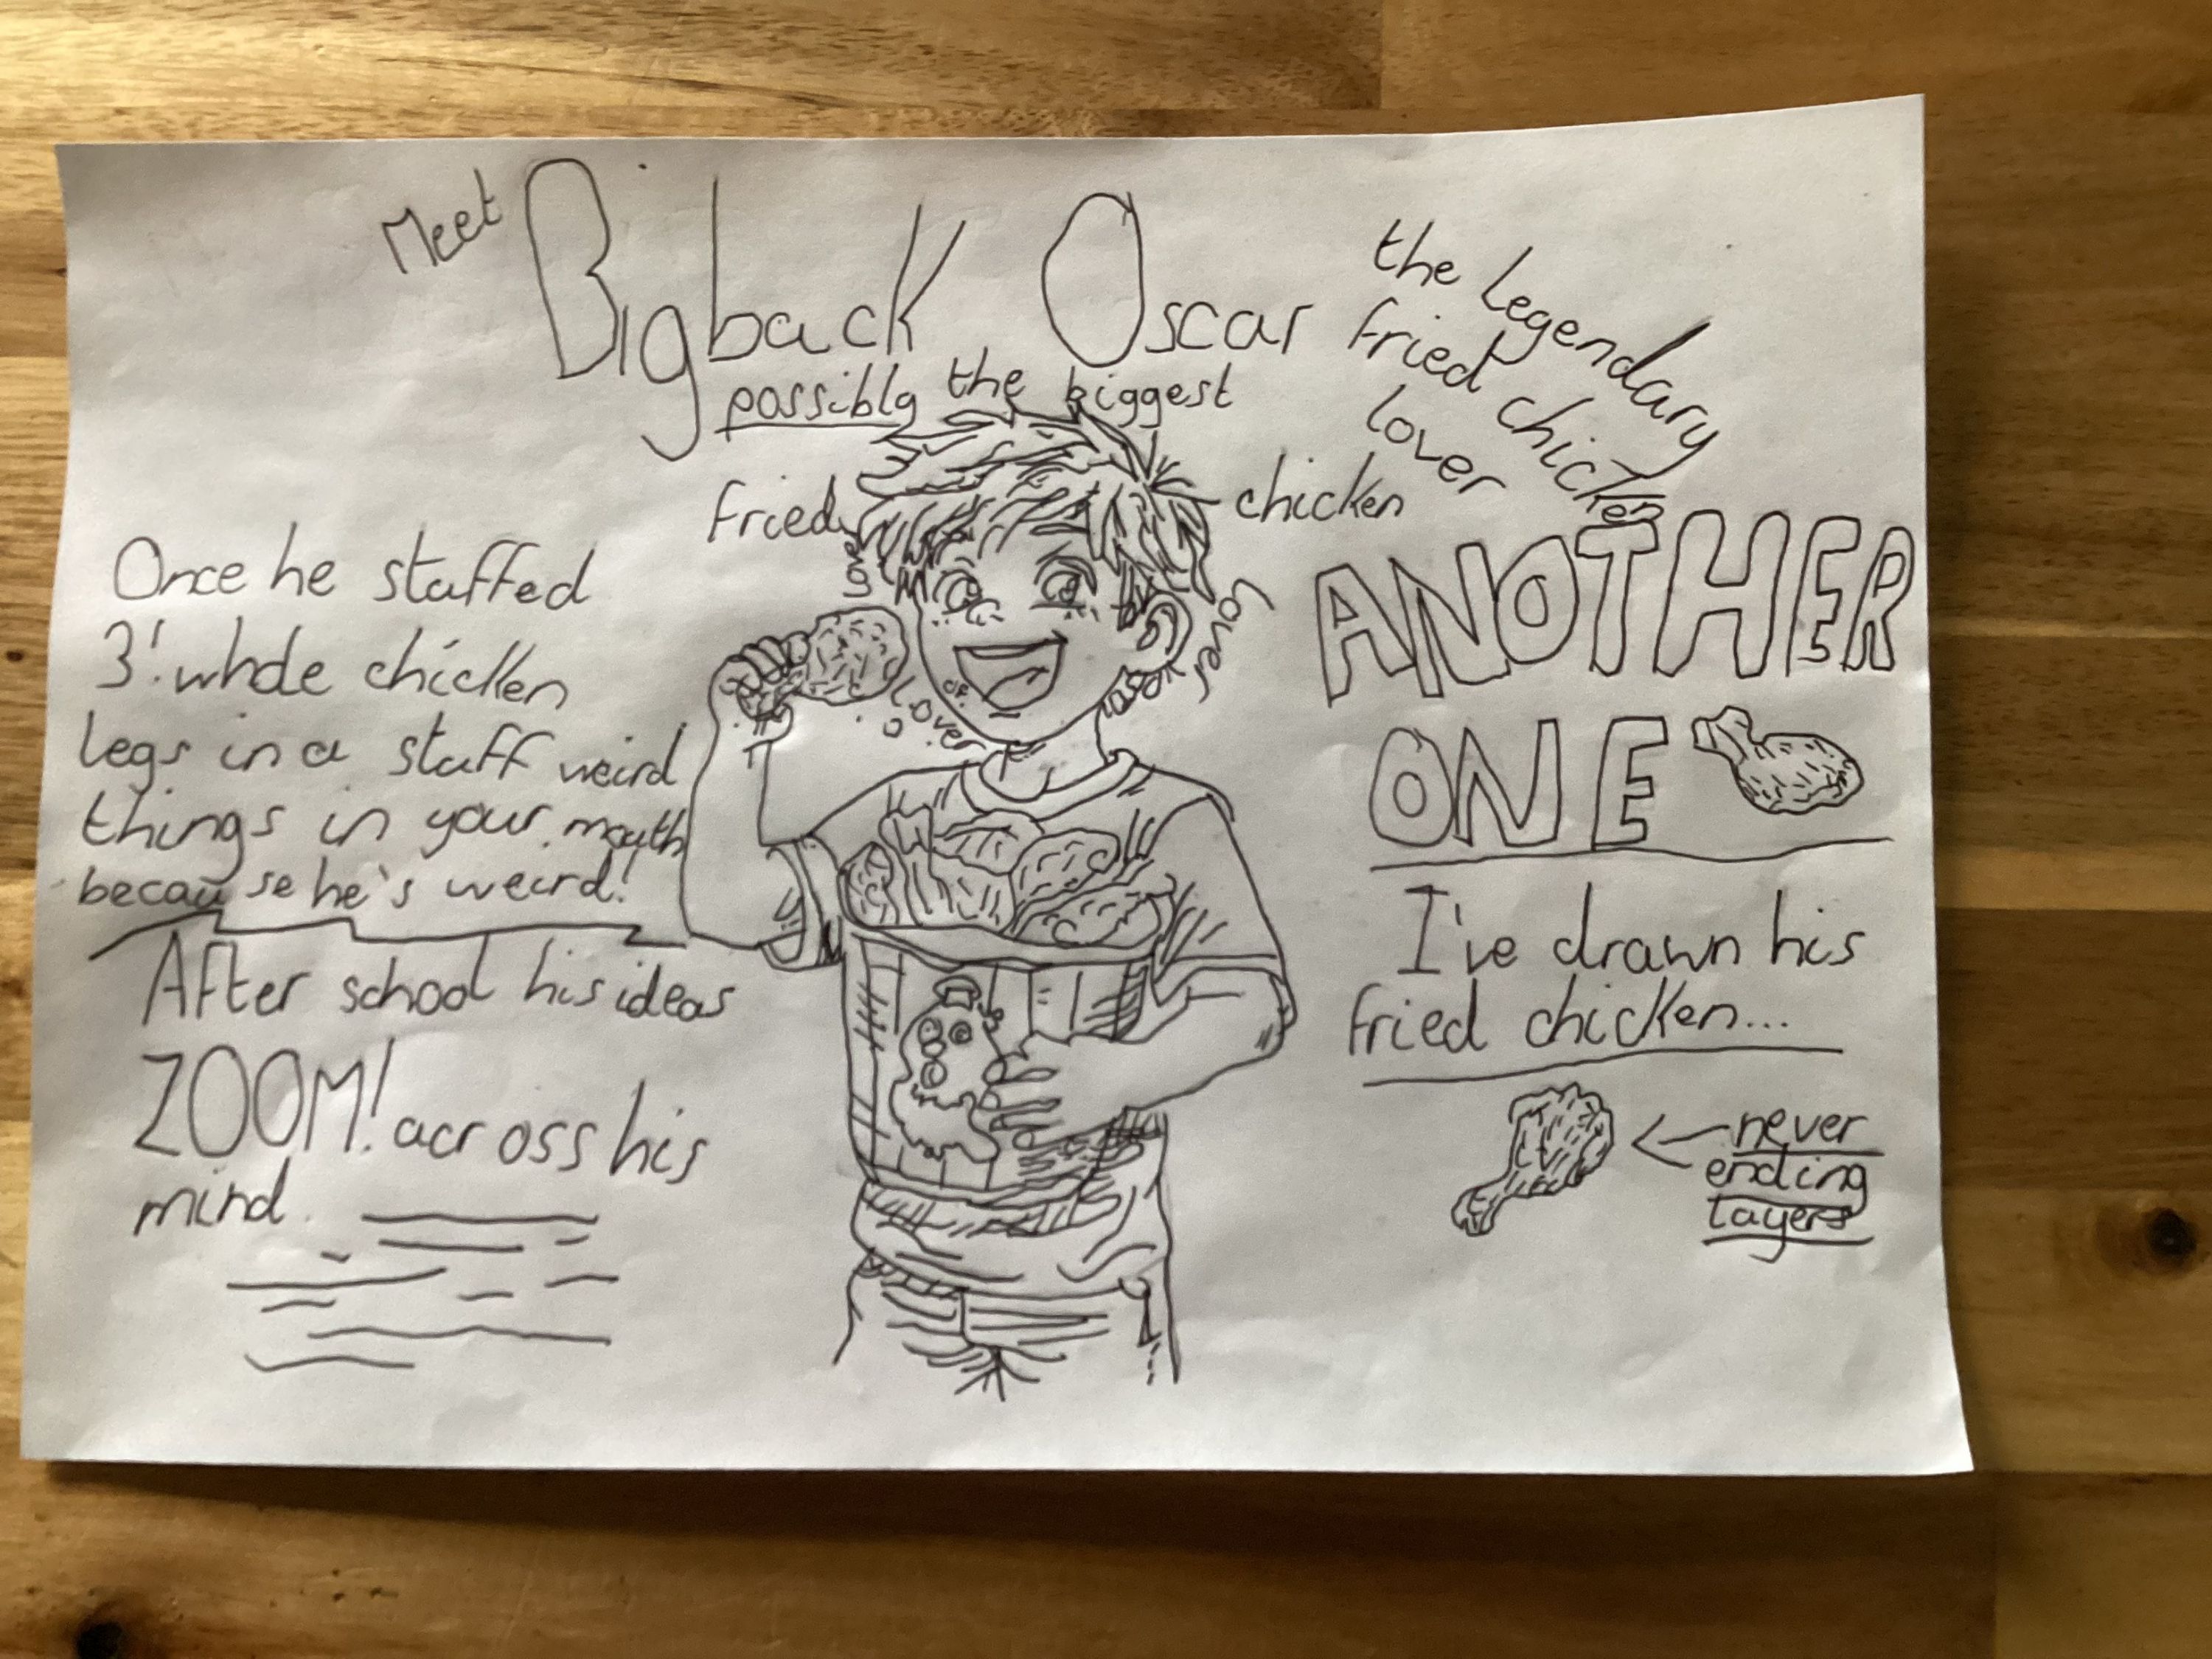 Meet Bigback Oscar
the legendary
fried chicken
lover
possibly the biggest
fried chicken
lover
lover
Once he stuffed
3! whole chicken
legs in a stuff weird
things in your mouth
because he's weird!
After school his ideas
ZOOM! across his
mind.
ANOTHER
ONE
I've drawn his
fried chicken...
never
ending
layers